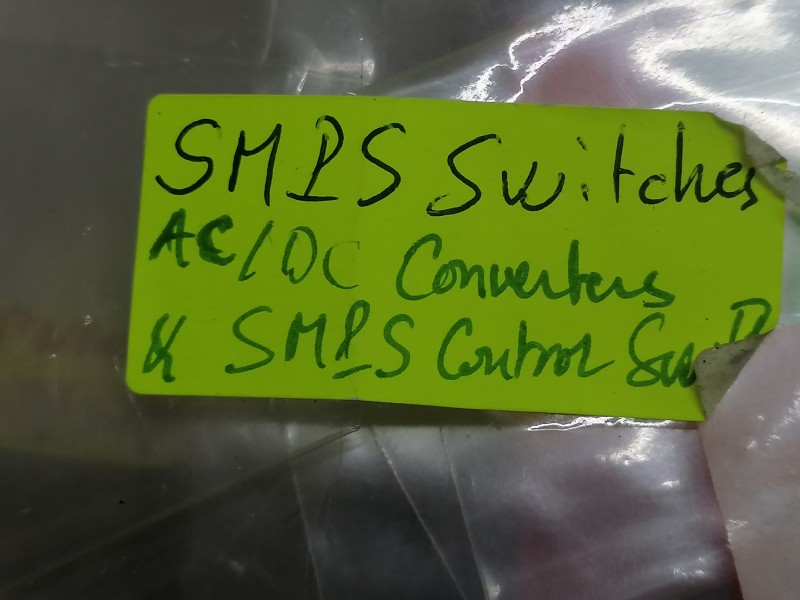 SMPS Switches
AC/DC Converters
& SMPS Control